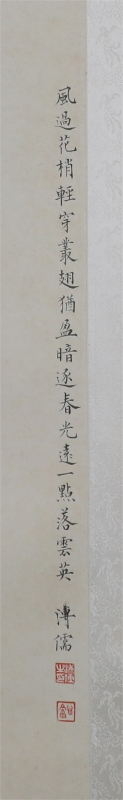 風過花梢輕穿叢翅猶盈暗逐春光遠一點落雲英
溥儒